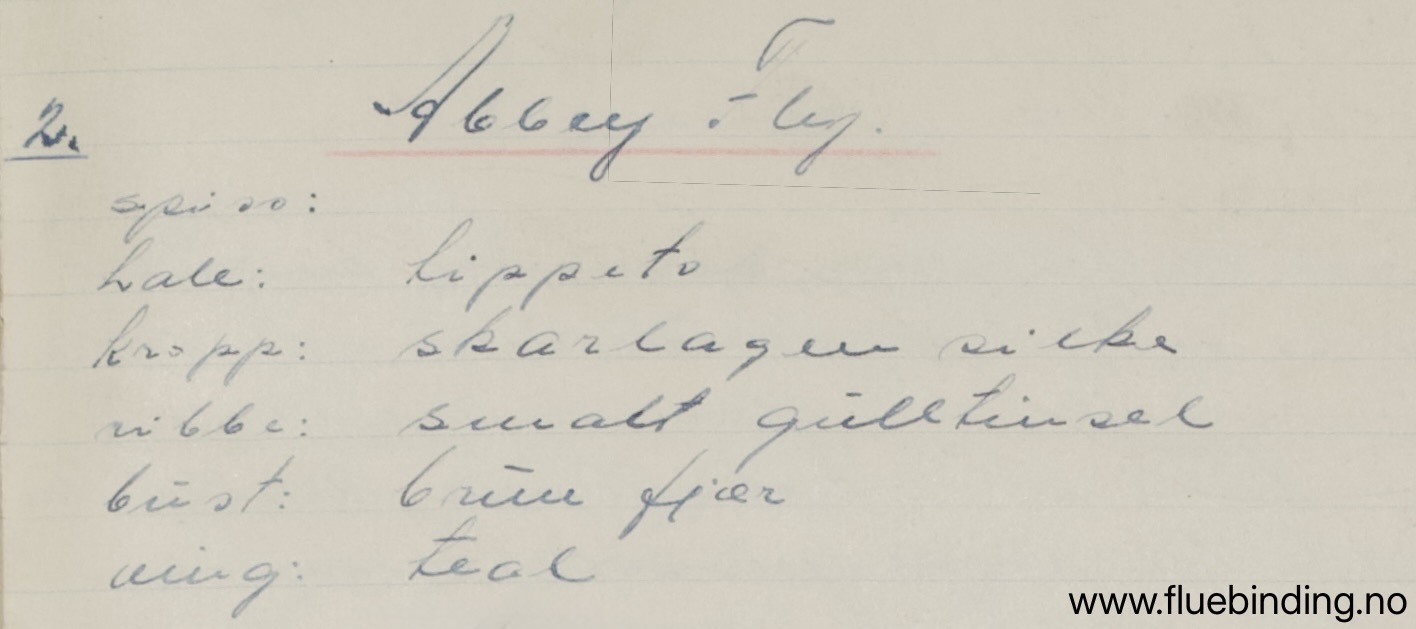 2. Abbey Fly.
spiss:
hale: tippets
kropp: skarlagen silke
ribbe: smalt gulltinsel
bust: brun fjær
ving: teal
www.fluebinding.no